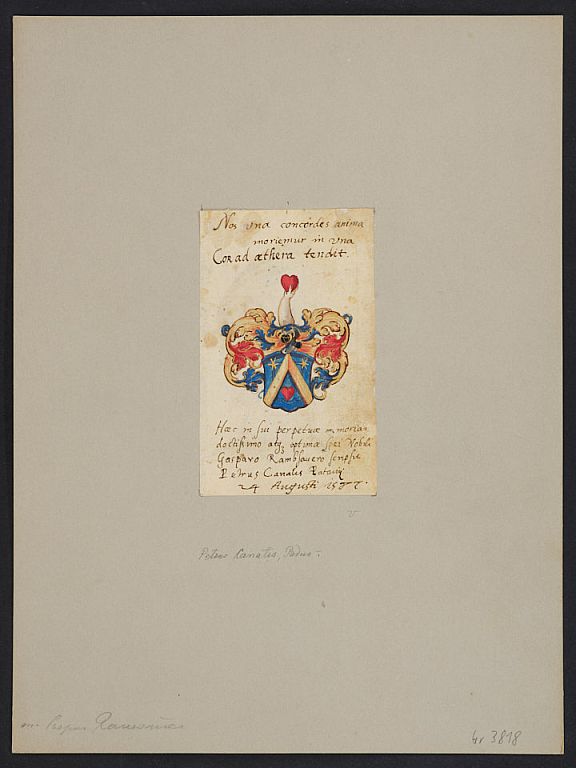 Nos vna concordes anima
moriemur in vna
Cor ad æthera tendit.
Hæc in sui perpetuæ memoriam
doctissimo atq3 optimæ spei Nobili
Gasparo Rambsauero scripsit
Petrus Canalis Patavij
24 Augusti 1577
Petrus Canalis, Padua
4r 3818